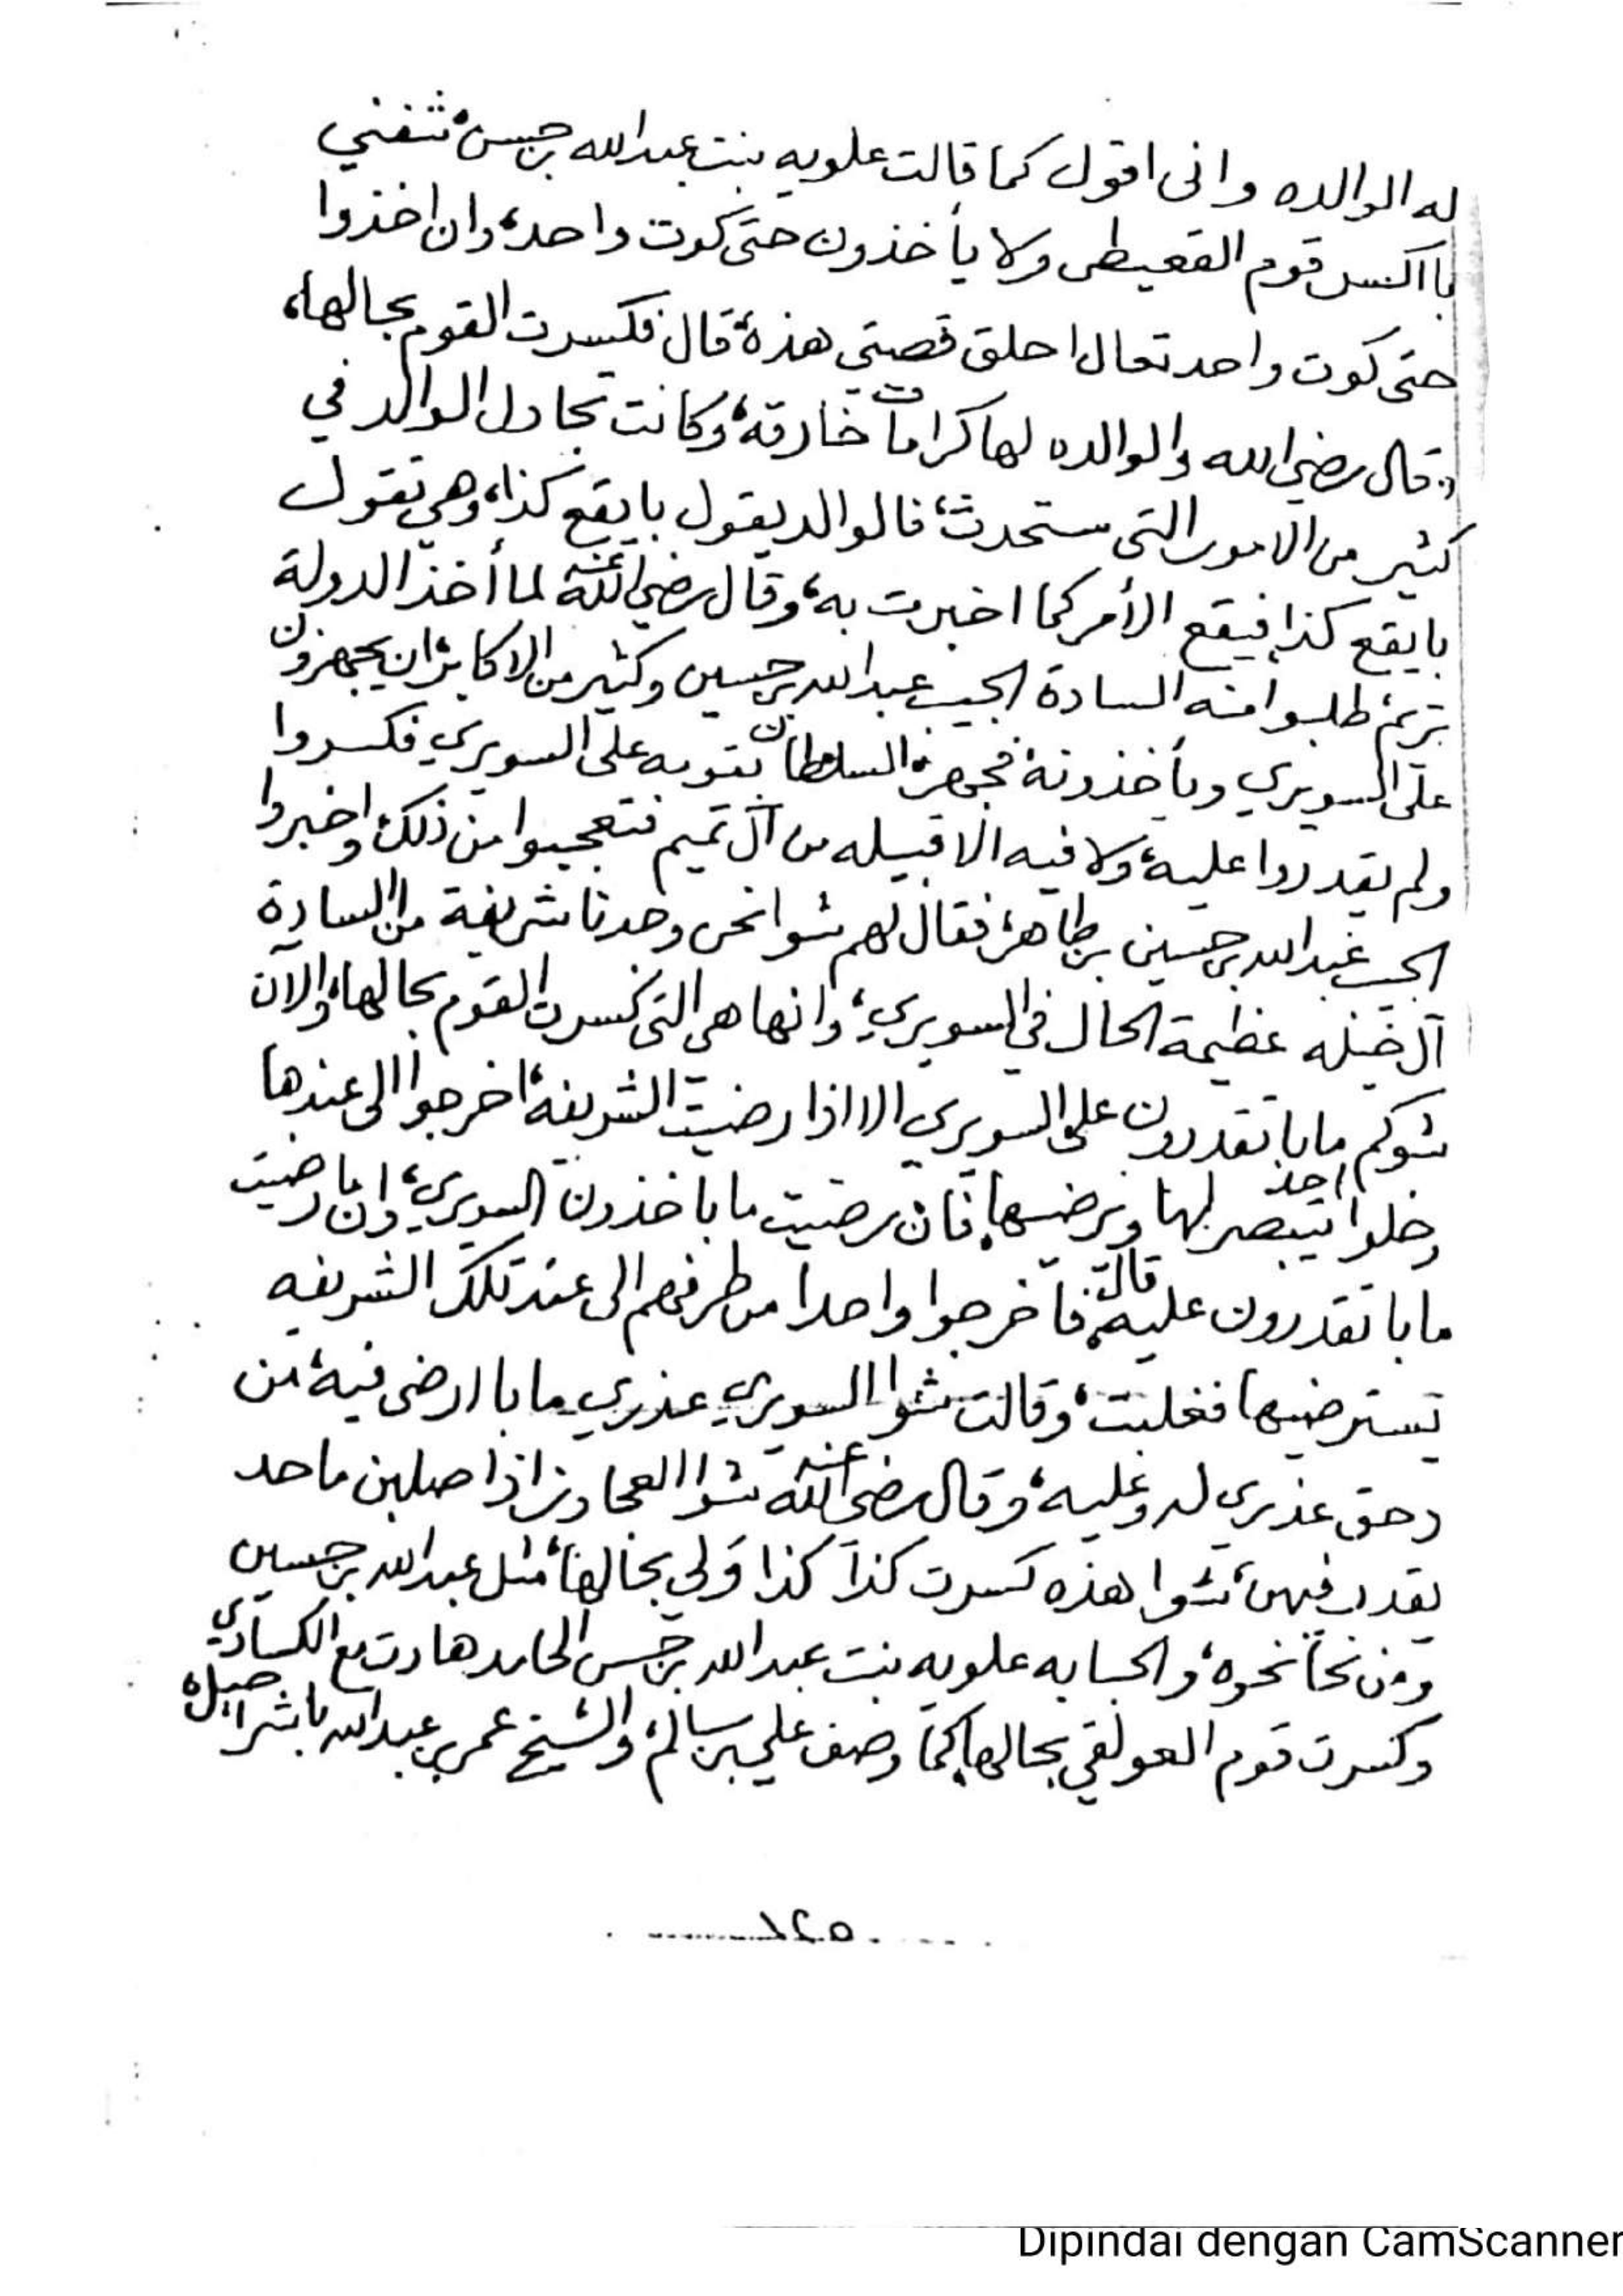 له الوالده واني اقول كما قالت علويه بنت عبدالله بن حسن،
بااكسر قوم القعيطي ولا يأخذون حتى كوت واحد، وان اخذوا
حتى كوت واحد تعال احلق قصتي هذه، قال فكسرت القوم بحالها،
قال رضي الله والوالده لها كرامات خارقة، وكانت تجادل الوالد في
كثير من الامور التي ستحدث، فالوالد يقول بايقع كذا، وهي تقول
بايقع كذا فيقع الأمر كما اخبرت به، وقال رضي الله عنه لما أخذ الدولة
تريم، طلبوا منه السادة الحبيب عبدالله بن حسين وكثير من الاكابر، ان يجهزون
على السويري ويأخذونه، فجهز السلطان بقومه على السويري فكسروا
ولم يقدروا عليه، ولا فيه الا قبيله من آل تميم فتعجبوا من ذلك، واخبروا
الحبيب عبدالله بن حسين بن طاهر، فقال لهم شوا نحن وجدنا شريفة من السادة
آل خيله عظيمة الحال في السويري، وانها هي التي كسرت القوم بحالها، والآن
شوكم مابا تقدرون على السويري الا اذا رضيت الشريفة، اخرجوا الى عندها
وخلوا احد يتبصر لها ويرضيها، فان رضيت ما باخذون السويري، وان مارضيت
مابا تقدرون عليه، قال فاخرجوا واحدا من طرفهم الى عند تلك الشريفه
يسترضيها فغلبت، وقالت شوا السويري عذري مابا ارضى فيه، من
دحق عذري له وعليه، وقال رضي الله عنه شوا العجاوز اذا صلين ماحد
يقدر فيهن، شوا هذه كسرت كذا كذا ولي بحالها، مثل عبدالله بن حسين
ومن نحا نحوه، والحبابه علويه بنت عبدالله بن حسن الحامد هادت مع الكسادي
وكسرت قوم العولقي بحالها، كما وصف علي بن سالم، والشيخ عمر بن عبدالله باشراحيل
١٢٥
Dipindai dengan CamScanner